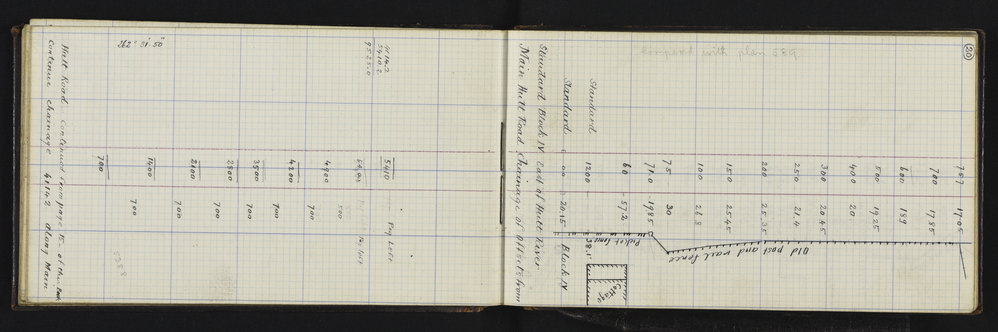 20
Compared with plan E89
757 17.05
700 17.85
600 18.9
500 19.25
400 20
300 20.45
250 21.4
200 25.35
150 25.45
100 26.8
75 30
71.0 19.85
60 57.2
1200
Standard
Standard 0.00 20.15 Block IV
Old post and rail fence
Picket fence
Cottage
Standard Block IV East of Hutt River
Main Hutt Road Chainage of Offsets from
4114.2
5410.2
9525.0
262° 31' 50"
5410 Peg
500
4900
700
4200
700
3500
700
2800
700
2100
700
1400
700
700
5288
Hutt Road Continued from page 15 of this Book
Continue chainage 4114.2 along Main